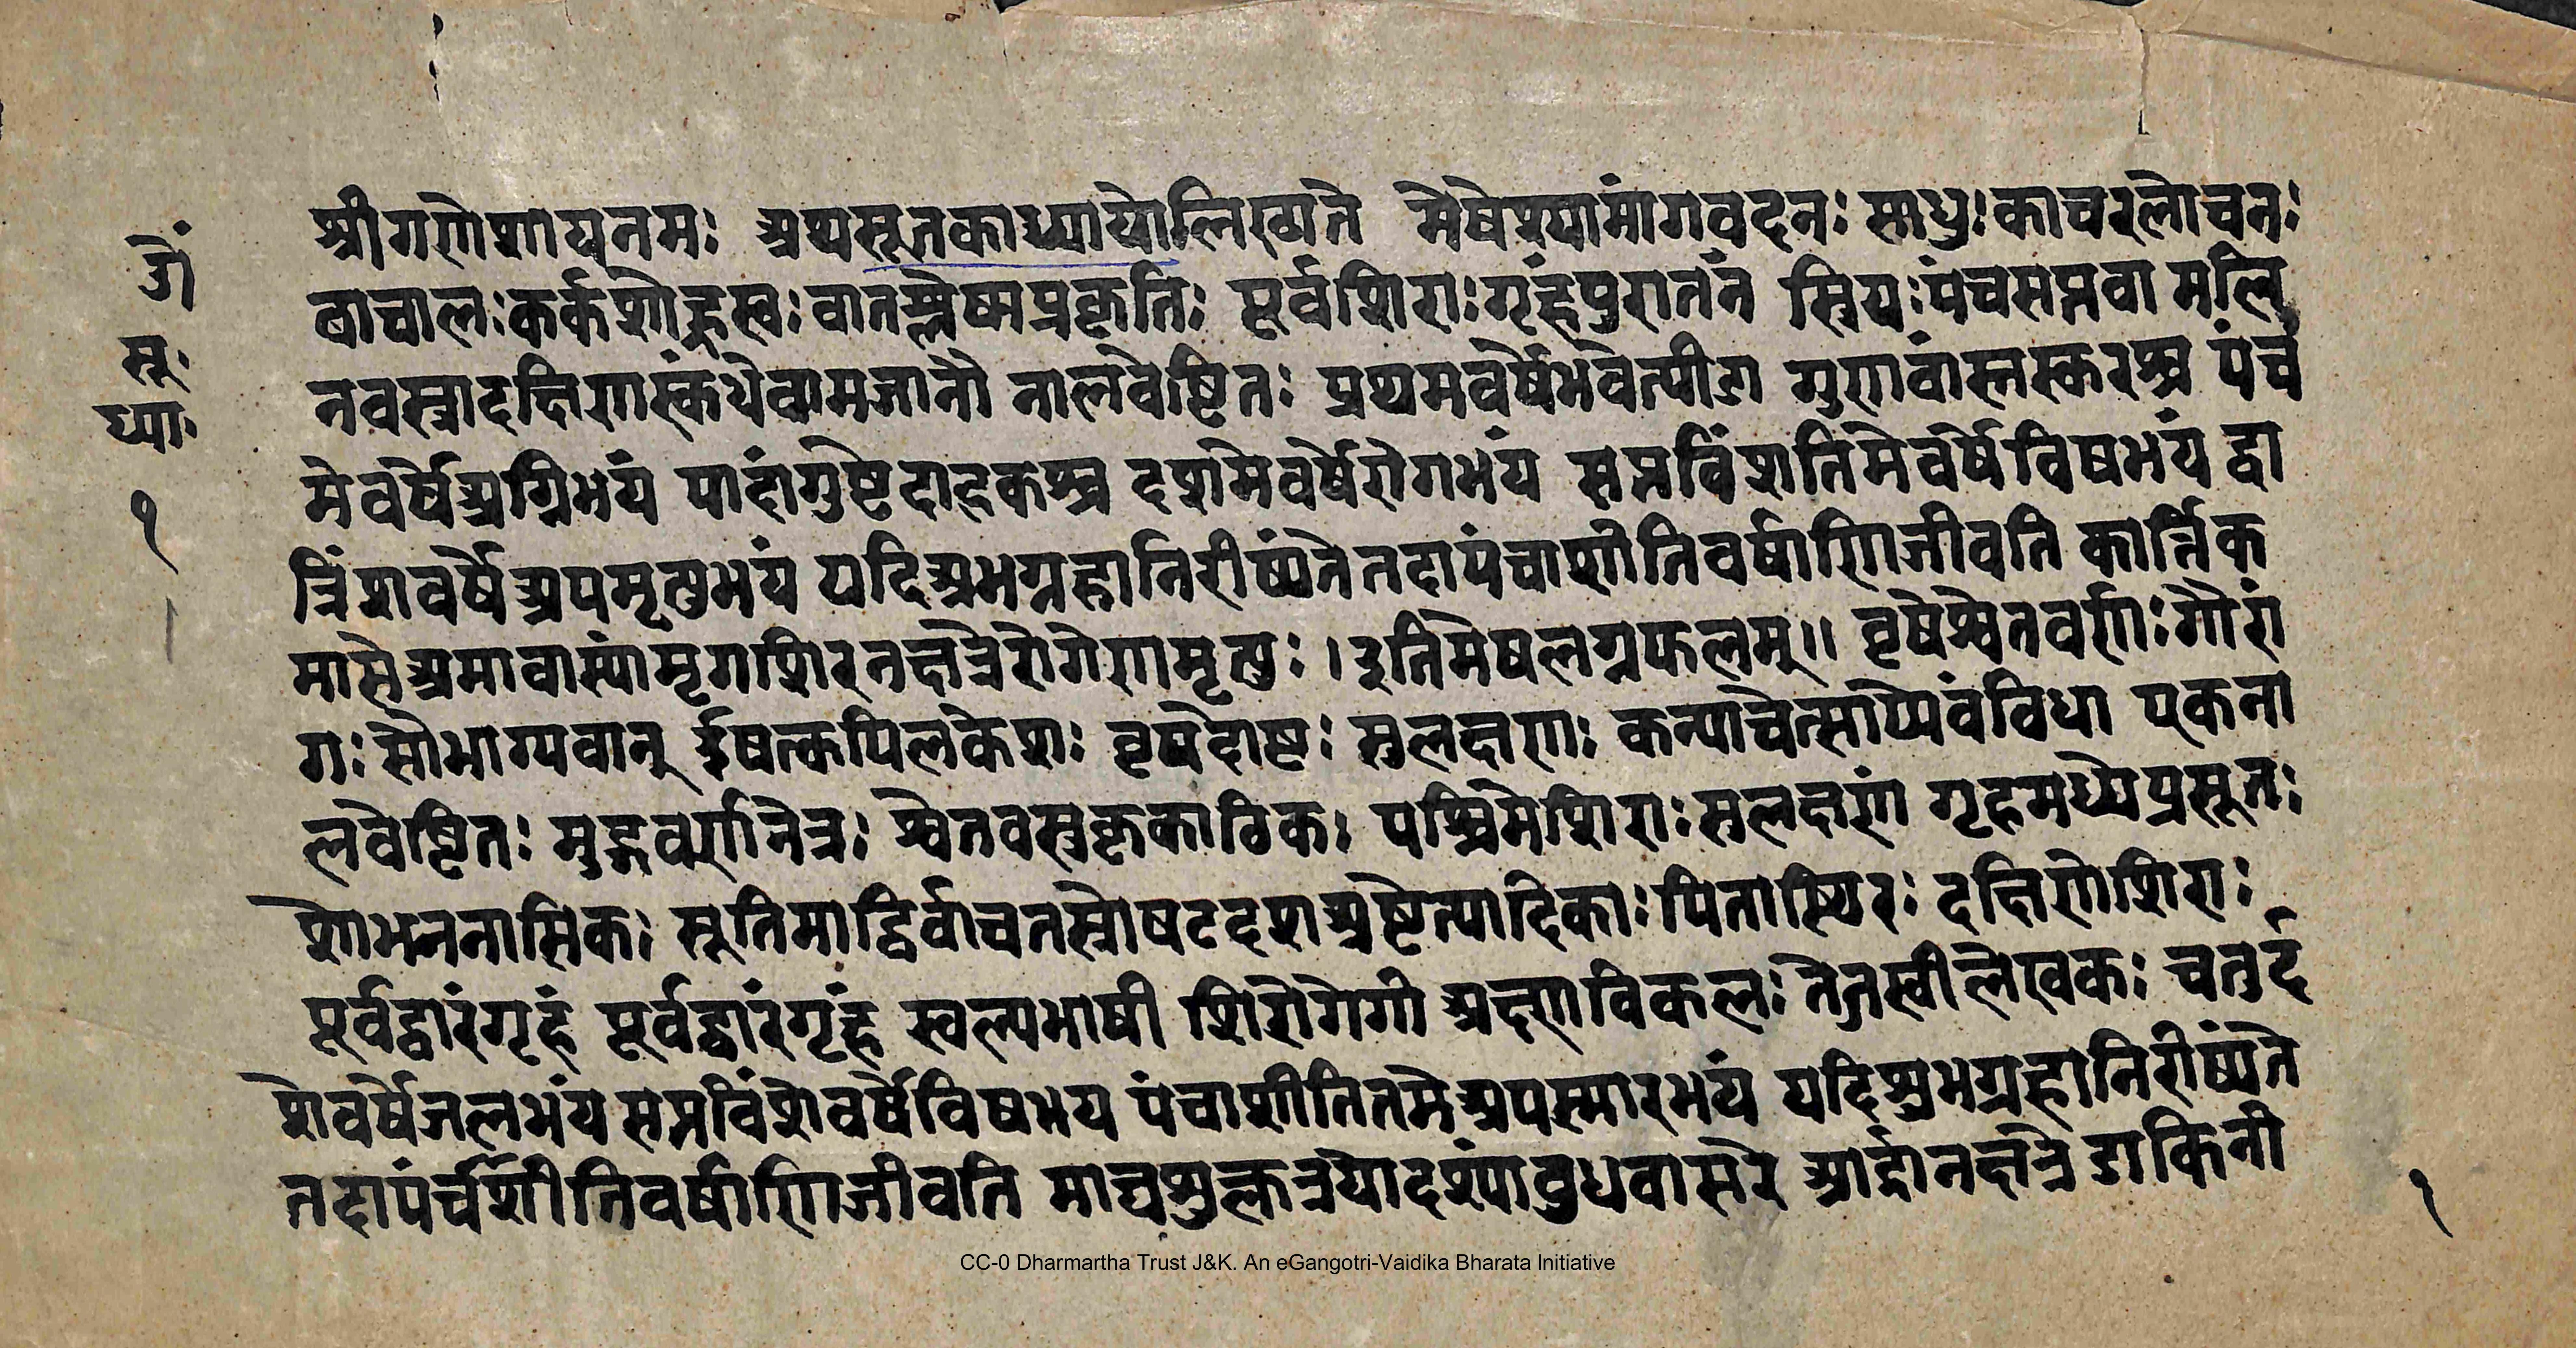 ॐ
सू॰
ध्या॰
१
श्रीगणेशायनमः अथसूतकाध्यायोलिख्यते मेषेश्यामांगवदनः साधुः काचरलोचनः
वाचालः कर्कशोह्रस्वः वातश्लेष्मप्रकृतिः पूर्वशिराः गृंहपुरातनं स्त्रियः पंचसप्तवा मलि
नवस्त्रादक्षिणास्कंधेवामजानौ नालवेष्टितः प्रथमवर्षेभवेत्पीडा गुणवांस्तस्करश्च पंच
मेवर्षेअग्निभयं पादांगुष्टेदाहकश्च दशमेवर्षेरोगभयं सप्तविंशतिमेवर्षेविषभयं द्वा
त्रिंशवर्षेअपमृत्युभयं यदिशुभग्रहानिरीष्यतेतदापंचाशीतिवर्षाणिजीवति कार्त्तिक
मासेअमावास्यांमृगशिरनक्षत्रेरोगेणमृत्युः ।इतिमेषलग्नफलम्॥ वृषेश्वेतवर्णः गौरां
गः सौभाग्यवान् ईषत्कपिलकेशः वृषदोष्टः सुलक्षणः कन्याचेत्साप्येवंविधा एकना
लवेष्टितः मुद्गवर्णनेत्रः श्वेतवस्त्रकृकाटिकः पश्चिमेशिराः सलक्षणं गृहमध्येप्रसूतः
शोभननासिकः सूतिमाद्विर्वाचतस्रोषटदशअष्टेत्यादिकाः पितास्थिरः दक्षिणेशिराः
पूर्वद्वारंगृहं पूर्वद्वारंगृहं स्वल्पभाषी शिरोरोगी अक्ष्णाविकलः तेजस्वीलेखकः चतुर्द
शेवर्षेजलभयं सप्तविंशेवर्षेविषभय पंचाशीतितमेअपस्मारभयं यदिशुभग्रहानिरीष्यते
तदापंचशीतिवर्षाणिजीवति माघशुक्लत्रयोदश्यांबुधवासरे आर्द्रानक्षत्रेडाकिनी
१
CC-0 Dharmartha Trust J&K. An eGangotri-Vaidika Bharata Initiative